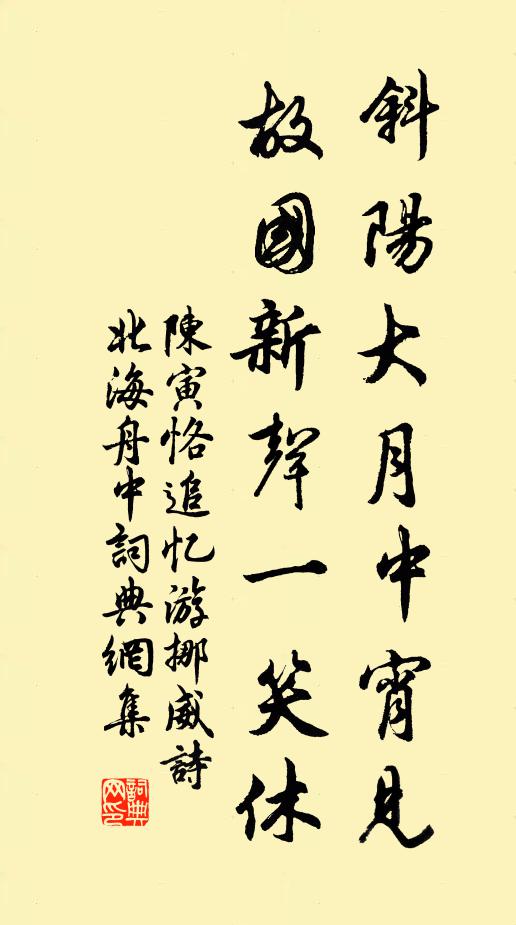 斜陽大月中宵見
故國新聲一笑休
陳寅恪追忆游挪威詩
北海舟中詞典網集
詞典网印